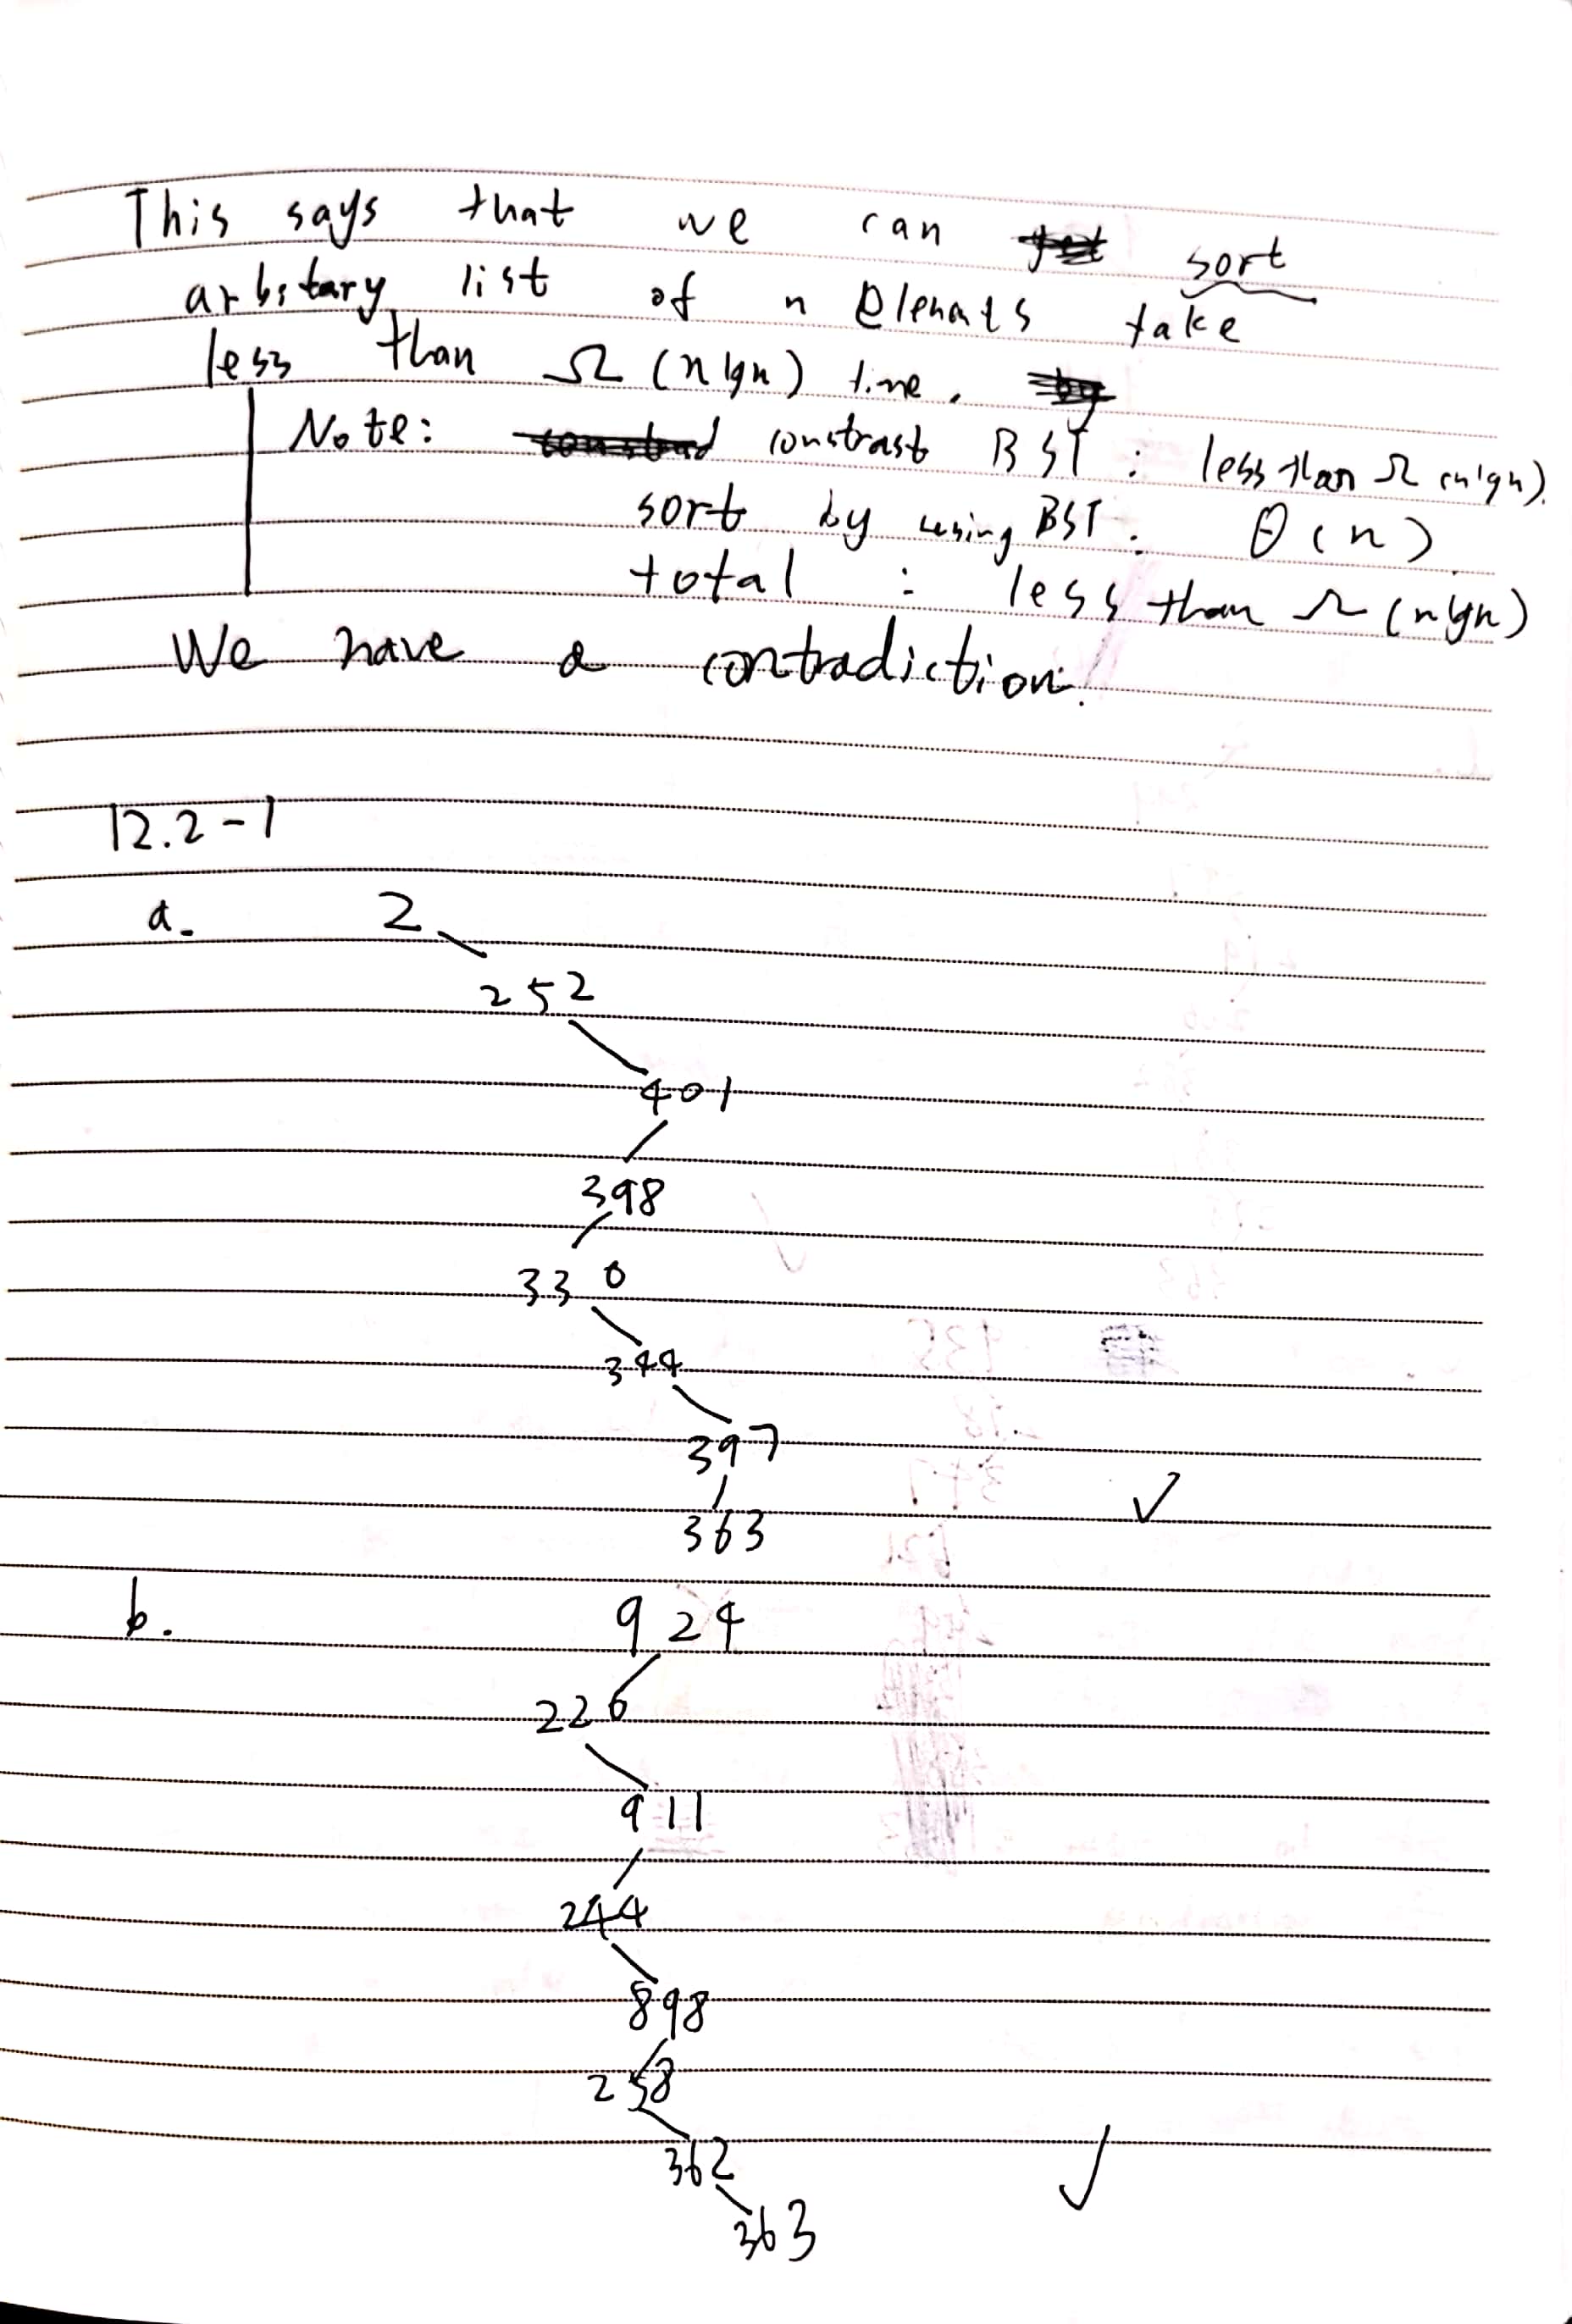 This says that we can sort
arbitary list of n Elements take
less than Ω(nlgn) time.
Note: constrast BST : less than Ω(nlgn).
sort by using BST : Θ(n).
total : less than Ω(nlgn)
We have a contradiction!
12.2-1
a. 2
252
401
398
330
344
397
363
b. 924
226
911
244
898
258
362
363